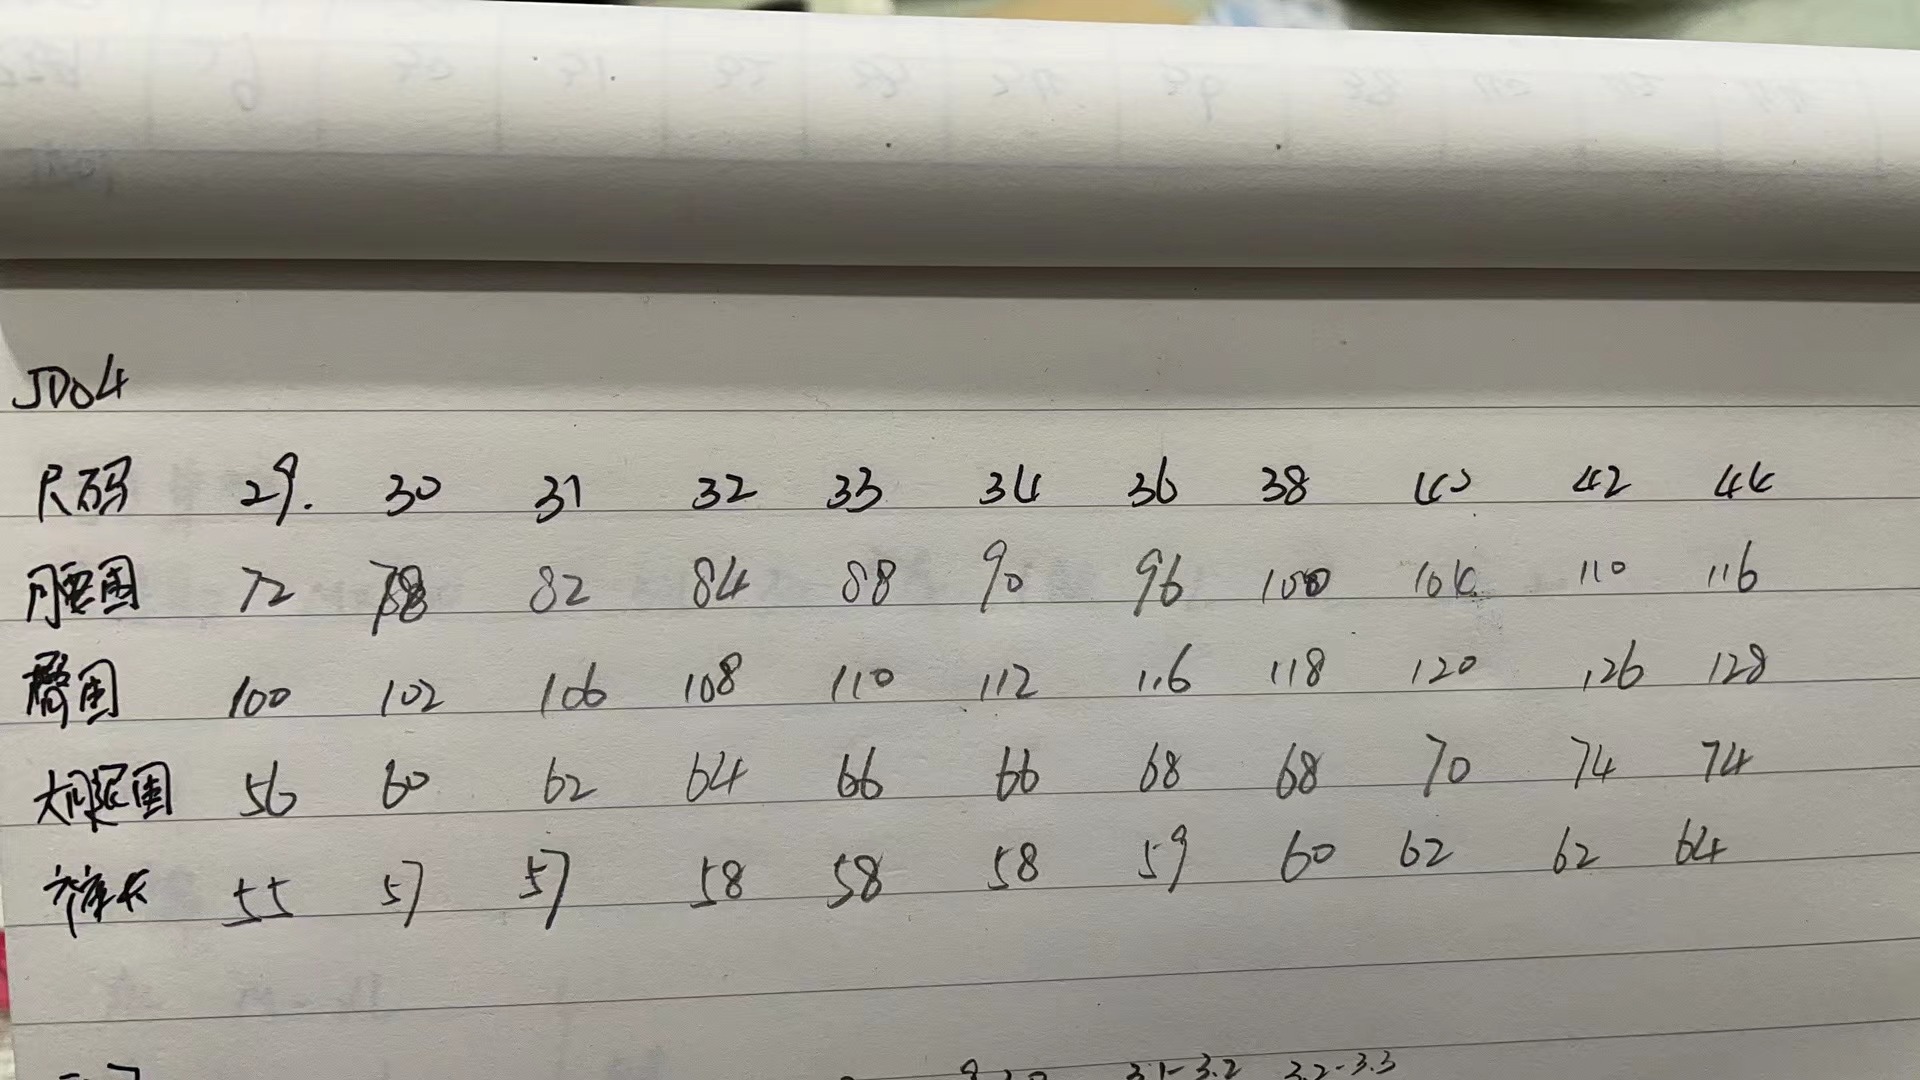 JD04
尺码 29. 30 31 32 33 34 36 38 40 42 44
腰围 72 78 82 84 88 90 96 100 104 110 116
臀围 100 102 106 108 110 112 116 118 120 126 128
大腿围 56 60 62 64 66 66 68 68 70 74 74
裤长 55 57 57 58 58 58 59 60 62 62 64
3.1-3.2 3.2-3.3